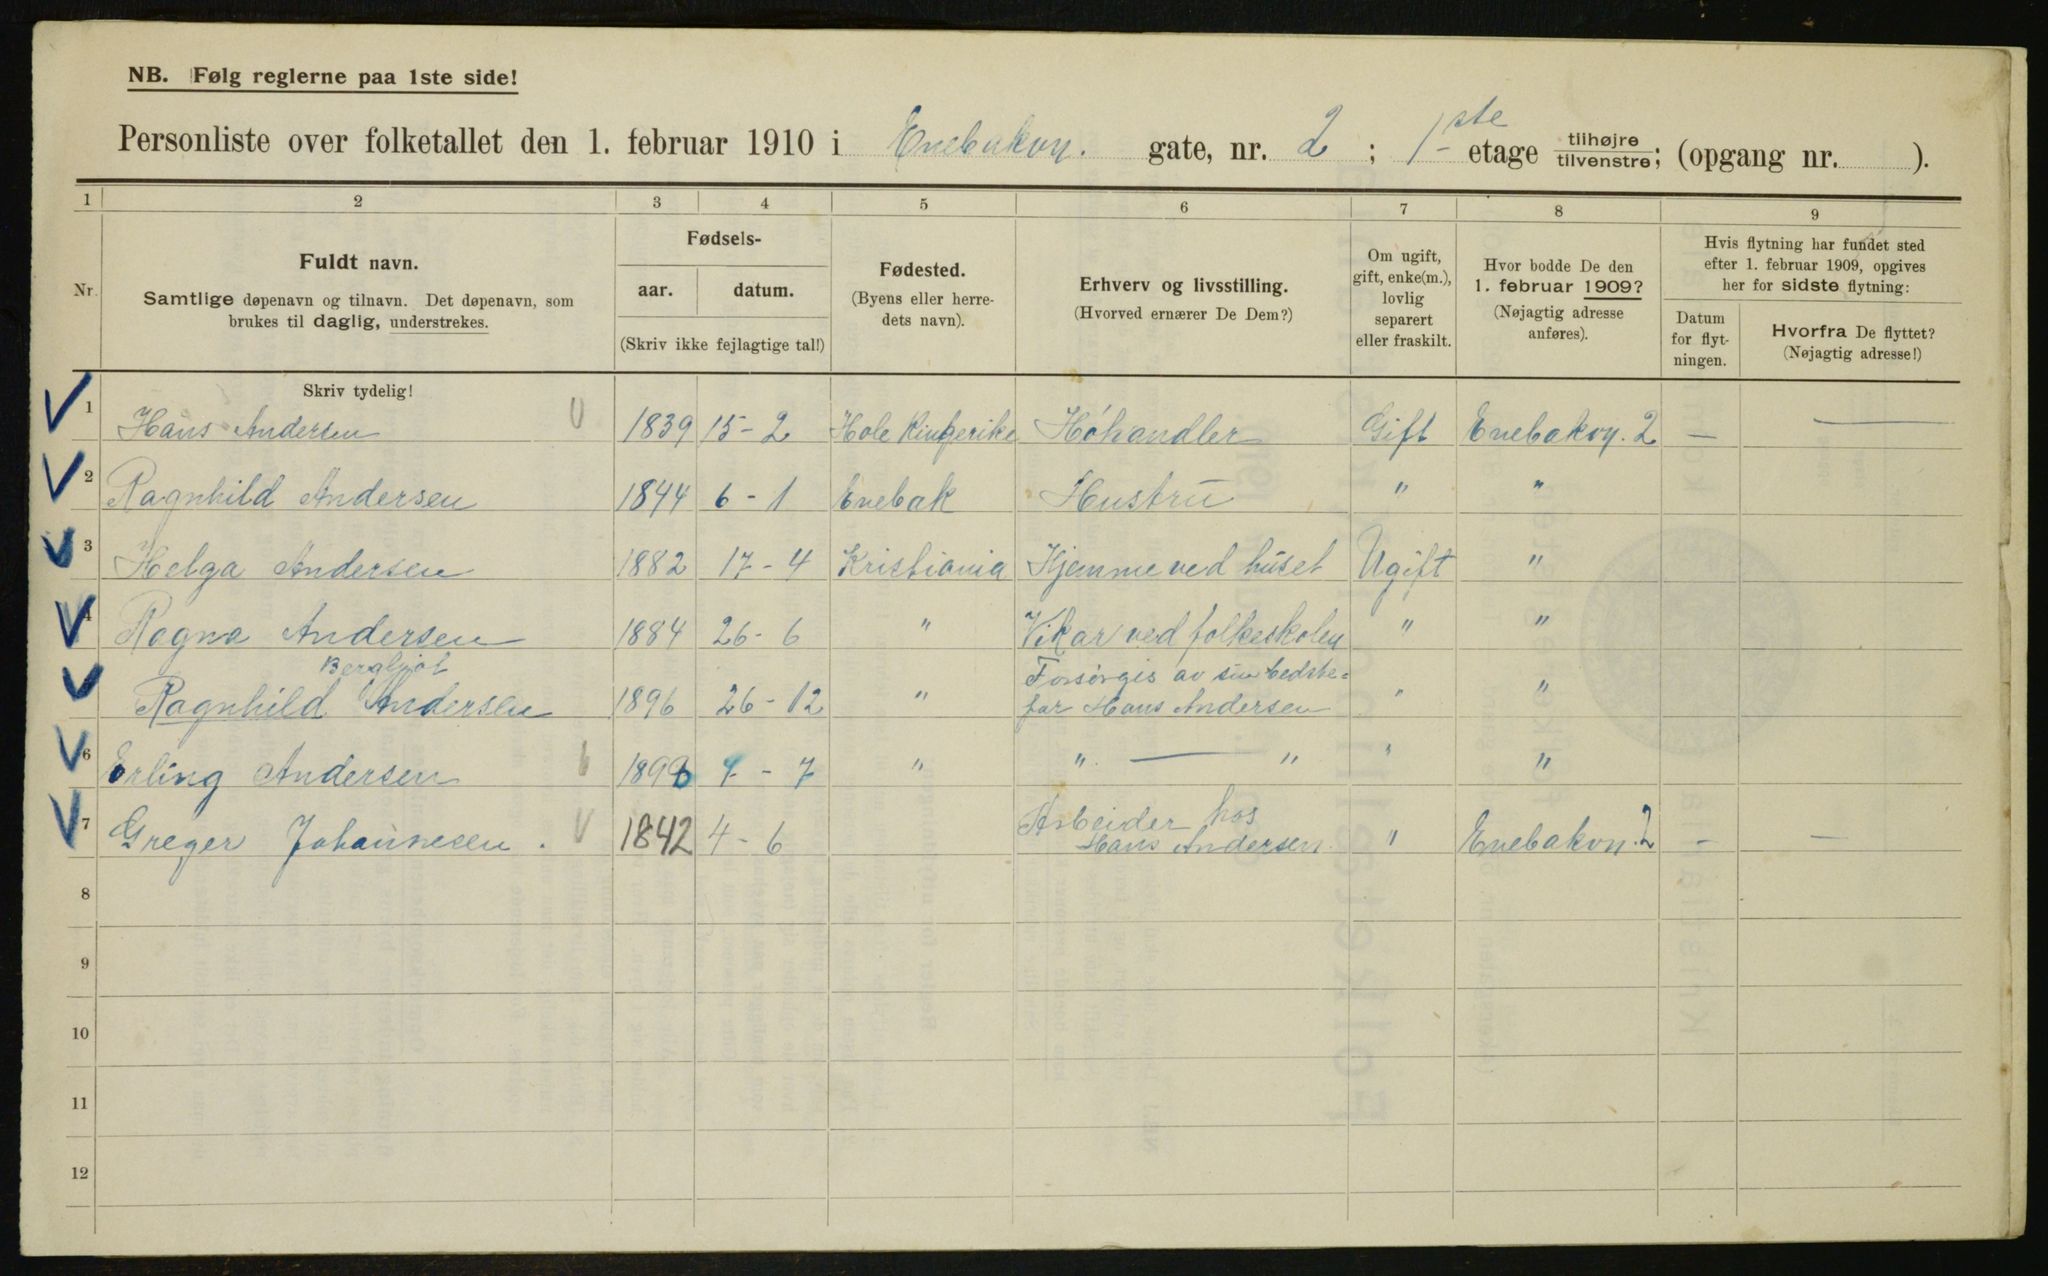 NB. Følg reglerne paa 1ste side!
Personliste over folketallet den 1. februar 1910 i Enebakvn. gate, nr. 2 ; 1ste etage tilhøjre/tilvenstre; (opgang nr. ).
1 2 3 4 5 6 7 8 9
Nr.
Fuldt navn.
Samtlige døpenavn og tilnavn. Det døpenavn, som
brukes til daglig, understrekes.
Fødsels-
aar. datum.
(Skriv ikke fejlagtige tal!)
Fødested.
(Byens eller herre-
dets navn).
Erhverv og livsstilling.
(Hvorved ernærer De Dem?)
Om ugift,
gift, enke(m.),
lovlig
separert
eller fraskilt.
Hvor bodde De den
1. februar 1909?
(Nøjagtig adresse
anføres).
Hvis flytning har fundet sted
efter 1. februar 1909, opgives
her for sidste flytning:
Datum
for flyt-
ningen.
Hvorfra De flyttet?
(Nøjagtig adresse!)
Skriv tydelig!
1 Hans Andersen 1839 15-2 Hole Ringerike Høhandler Gift Enebakvn. 2 — —
2 Ragnhild Andersen 1844 6-1 Enebak Hustru " "
3 Helga Andersen 1882 17-4 Kristiania Hjemme ved huset Ugift "
4 Ragna Andersen 1884 26-6 " Vikar ved folkeskolen " "
Bergljot
Ragnhild Andersen 1896 26-12 " Forsørges av sin bedste=
far Hans Andersen " "
6 Erling Andersen 1-7 " " — " " "
7 Greger Johannesen. 1842 4-6 Arbeider hos
Hans Andersen. " Enebakvn. 2 — —
8
9
10
11
12